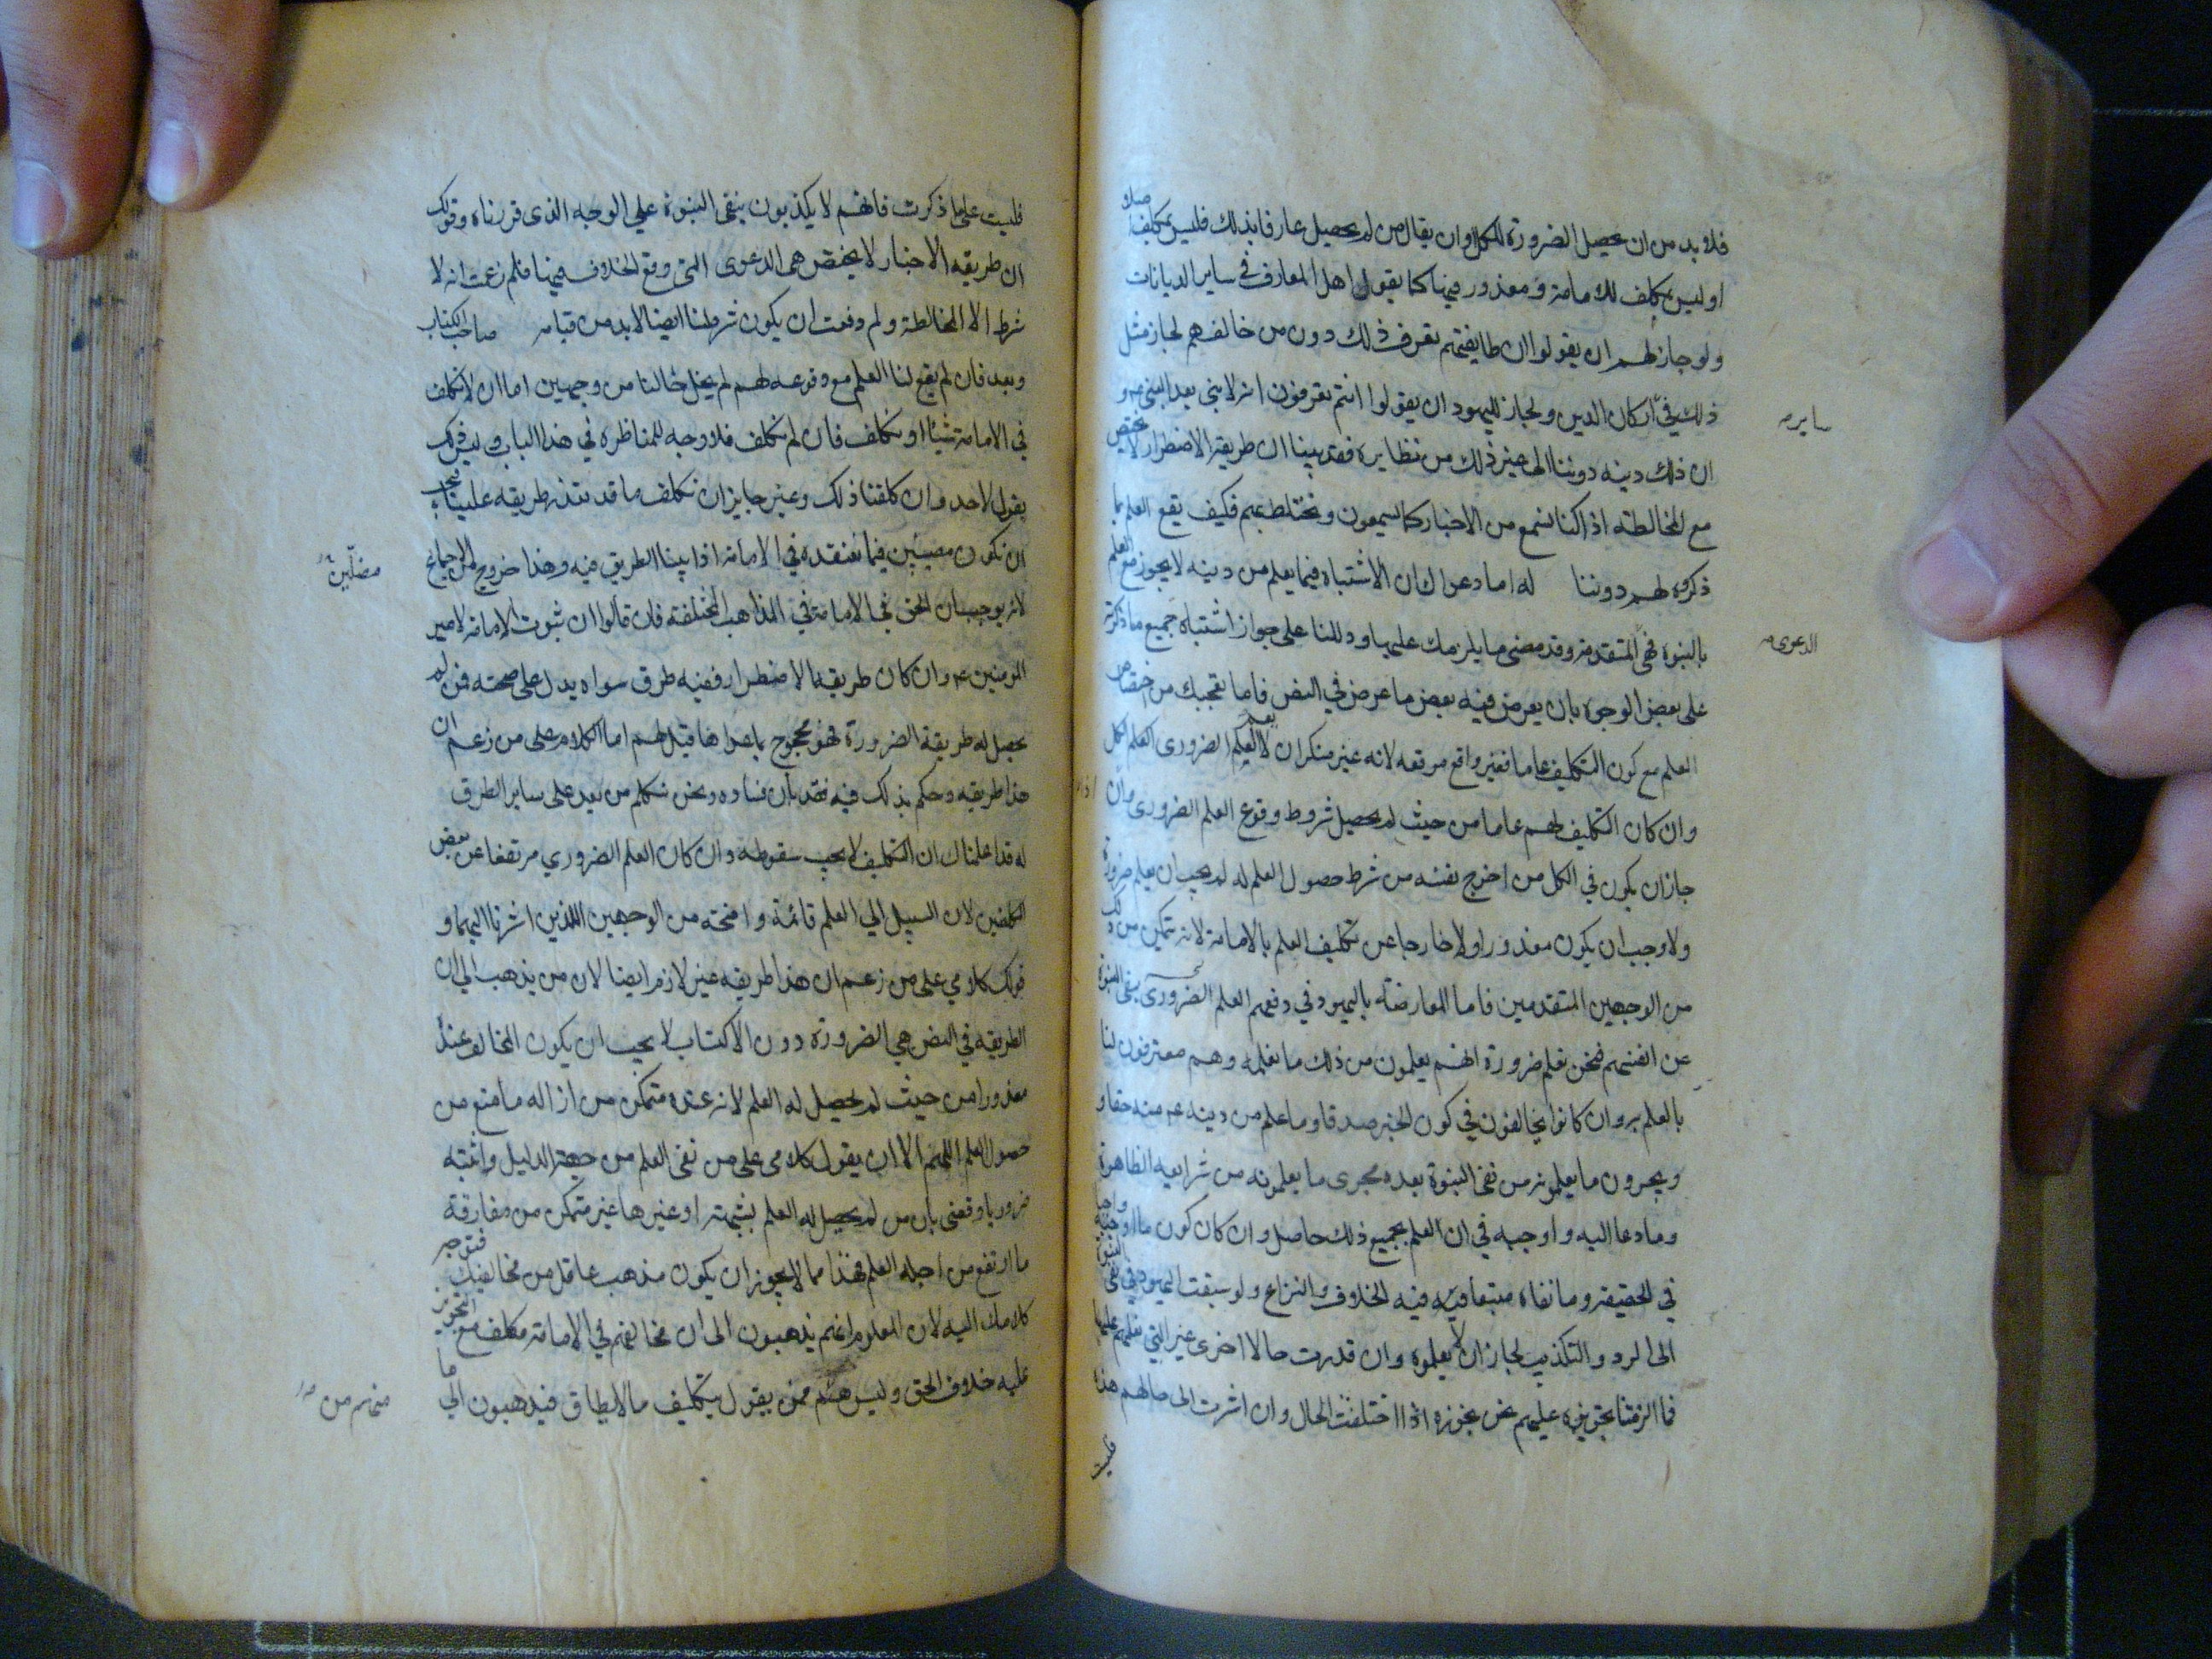 فلا بد من ان يحصل الضرورة للكل او ان يقال من لم يحصل عارفا بذلك فليس بمكلف اصلا
او ليس بمكلف للامامة ومعذور فيها كما يقول اهل المعارف في ساير الديانات
ولو جاز لهم ان يقولوا ان طايفتهم تعرف ذلك دون من خالفهم لجاز مثل
ذلك في اركان الدين ولجاز لليهود ان يقولوا انتم تعرفون انه لا نبى بعد النبى ع و
سايره
ان ذلك دينه دوننا الى غير ذلك من نظايره فقد بينا ان طريقة الاضطرار لا يختص
مع المخالطة اذا كنا نسمع من الاخبار كما يسمعون ونختلط بهم فكيف يقع العلم بما
ذكروه لهم دوننا له اما دعواك ان الاشتباه فيما يعلم من دينه لا يجوز مع العلم
بالنبوة فهى المتقدمة وقد مضى ما يلزمك عليها ودللنا على جواز اشتباه جميع ما ذكرته
الدعوى
على بعض الوجوه بان يعرض فيه بعض ما عرض في النص فاما تعجبك من اختصاص
العلم مع كون التكليف عاما فغير واقع موقعه لانه غير منكر ان لا يعم العلم الضرورى الكل
وان كان التكليف لهم عاما من حيث لم يحصل شروط وقوع العلم الضرورى وان
جاز ان يكون في الكل من اخرج نفسه من شرط حصول العلم له لم يجب ان يعلم ضرورة
ولا وجب ان يكون معذورا ولا خارجا عن تكليف العلم بالامامة لانه تتمكن من ذلك
من الوجهين المتقدمين فاما المعارضة باليهود في دفعهم العلم الضرورى بنفى النبوة
عن انفسهم فنحن نعلم ضرورة انهم يعلمون من ذلك ما نعلمه وهم معترفون لنا
بالعلم به وان كانوا يخالفون في كون الخبر صدقا وما علم من دينه ع منه حقا و
ويجرون ما يعلمونه من نفى النبوة بعده مجرى ما يعلمونه من شرايعه الظاهرة
وما دعا اليه واوجبه في ان العلم بجميع ذلك حاصل وان كان كون ما اوجبه واجبا
في الحقيقة وما نفاه منتفيا فيه الخلاف والنزاع ولو سبقت اليهود في نفى النبوة
الى الرد والتكذيب لجاز ان لا يعلموه وان قدرت حالا اخرى غير التي نعلمهم عليها
فما الزمتنا تجويزه عليهم نحن نجوزه اذا اختلفت الحال وان اشرت الى حالهم هذه
فليست
فليست على ما ذكرت فانهم لا يكذبون بنفى النبوة على الوجه الذى قررناه وقولك
ان طريقه الاخبار لا يختص هى الدعوى التى وقع الخلاف فيها فلم زعمت انه لا
شرط الا المخالطة ولم دفعت ان يكون شرطنا ايضا لا بد من قيامه صاحب الكتاب
وبعد فان لم يقع لنا العلم مع وقوعه لهم لم يخل حالنا من وجهين اما ان لا نكلف
في الامامة شيئا او نكلف فان لم نكلف فلا وجه للمناظره في هذا الباب وليس ذلك
بقول لاحد وان كلفنا ذلك وغير جايز ان نكلف ما قد تعذر طريقه علينا فيجب
ان نكون مصيبين فيما نعتقده في الامامة اذا بينا الطريق فيه وهذا خروج من الاجماع
لانه يوجب ان الحق في الامامة في المذاهب المختلفة فان قالوا ان ثبوت الامامة لامير
المومنين ع وان كان طريقه الاضطرار ففيه طرق سواه يدل على صحته فمن لم
يحصل له طريقة الضرورة فهو محجوج بما سواها قيل لهم اما الكلام على من زعم ان
هذا طريقه وحكم بذلك فيه فقد بان فساده ونحن نتكلم من بعد على ساير الطرق
له قد اعلمناك ان التكليف لا يجب سقوطه وان كان العلم الضروري مرتفعا عن بعض
المكلفين لان السبيل الي العلم قائمة واضحة من الوجهين اللذين اشرنا اليهما و
قولك كلامي على من زعم ان هذا طريقه غير لازم ايضا لان من يذهب الي ان
الطريقه في النص هي الضرورة دون الاكتساب لا يجب ان يكون المخالف عنده
معذورا من حيث لم يحصل له العلم لانه عنده متمكن من ازاله ما منع من
حصول العلم اللهم الا ان يقول كلامى على من نفى العلم من جهة الدليل واثبته
ضروريا وقضى بان من لم يحصل له العلم بشبهة او غيرها غير متمكن من مفارقة
ما ارتفع من اجله العلم فهذا مما لا يجوز ان يكون مذهب عاقل من مخالفيك فيتوجه
كلامك اليه لان المعلوم انهم يذهبون الى ان مخالفهم في الامامة مكلف مع
عليه خلاف الحق وليس هم ممن يقول بتكليف ما لا يطاق فيذهبون الي ما
منهم من